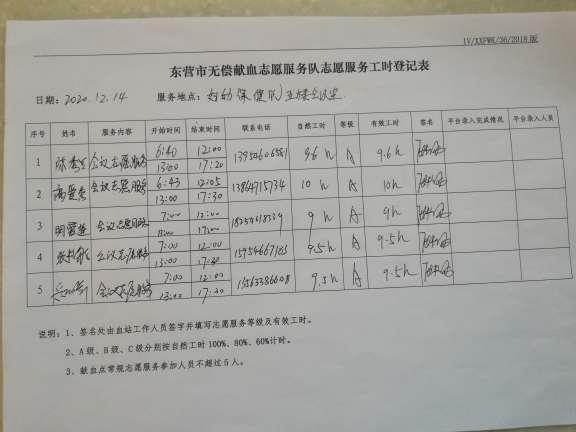 1V/XXFWK/36/2018版
东营市无偿献血志愿服务队志愿服务工时登记表
日期：2020.12.14 服务地点：妇幼保健院五楼会议室
序号 姓名 服务内容 开始时间 结束时间 联系电话 自然工时 等级 有效工时 签名 平台录入完成情况 平台录入人员
1 会议志愿服务 6:40 12:00 9.6h A 9.6h
13:00 17:20
2 会议志愿服务 6:43 12:05 13864715734 10h A 10h
13:00 17:30
3 会议志愿服务 7:00 12:00 9h A 9h
17:00
4 会议志愿服务 7:00 12:00 15954667103 9.5h A 9.5h
13:00 17:30
5 会议志愿服务 7:00 12:00 13563386608 9.5h A 9.5h
13:00 17:30
说明：1、签名处由血站工作人员签字并填写志愿服务等级及有效工时。
2、A级、B级、C级分别按自然工时100%、80%、60%计时。
3、献血点常规志愿服务参加人员不超过5人。